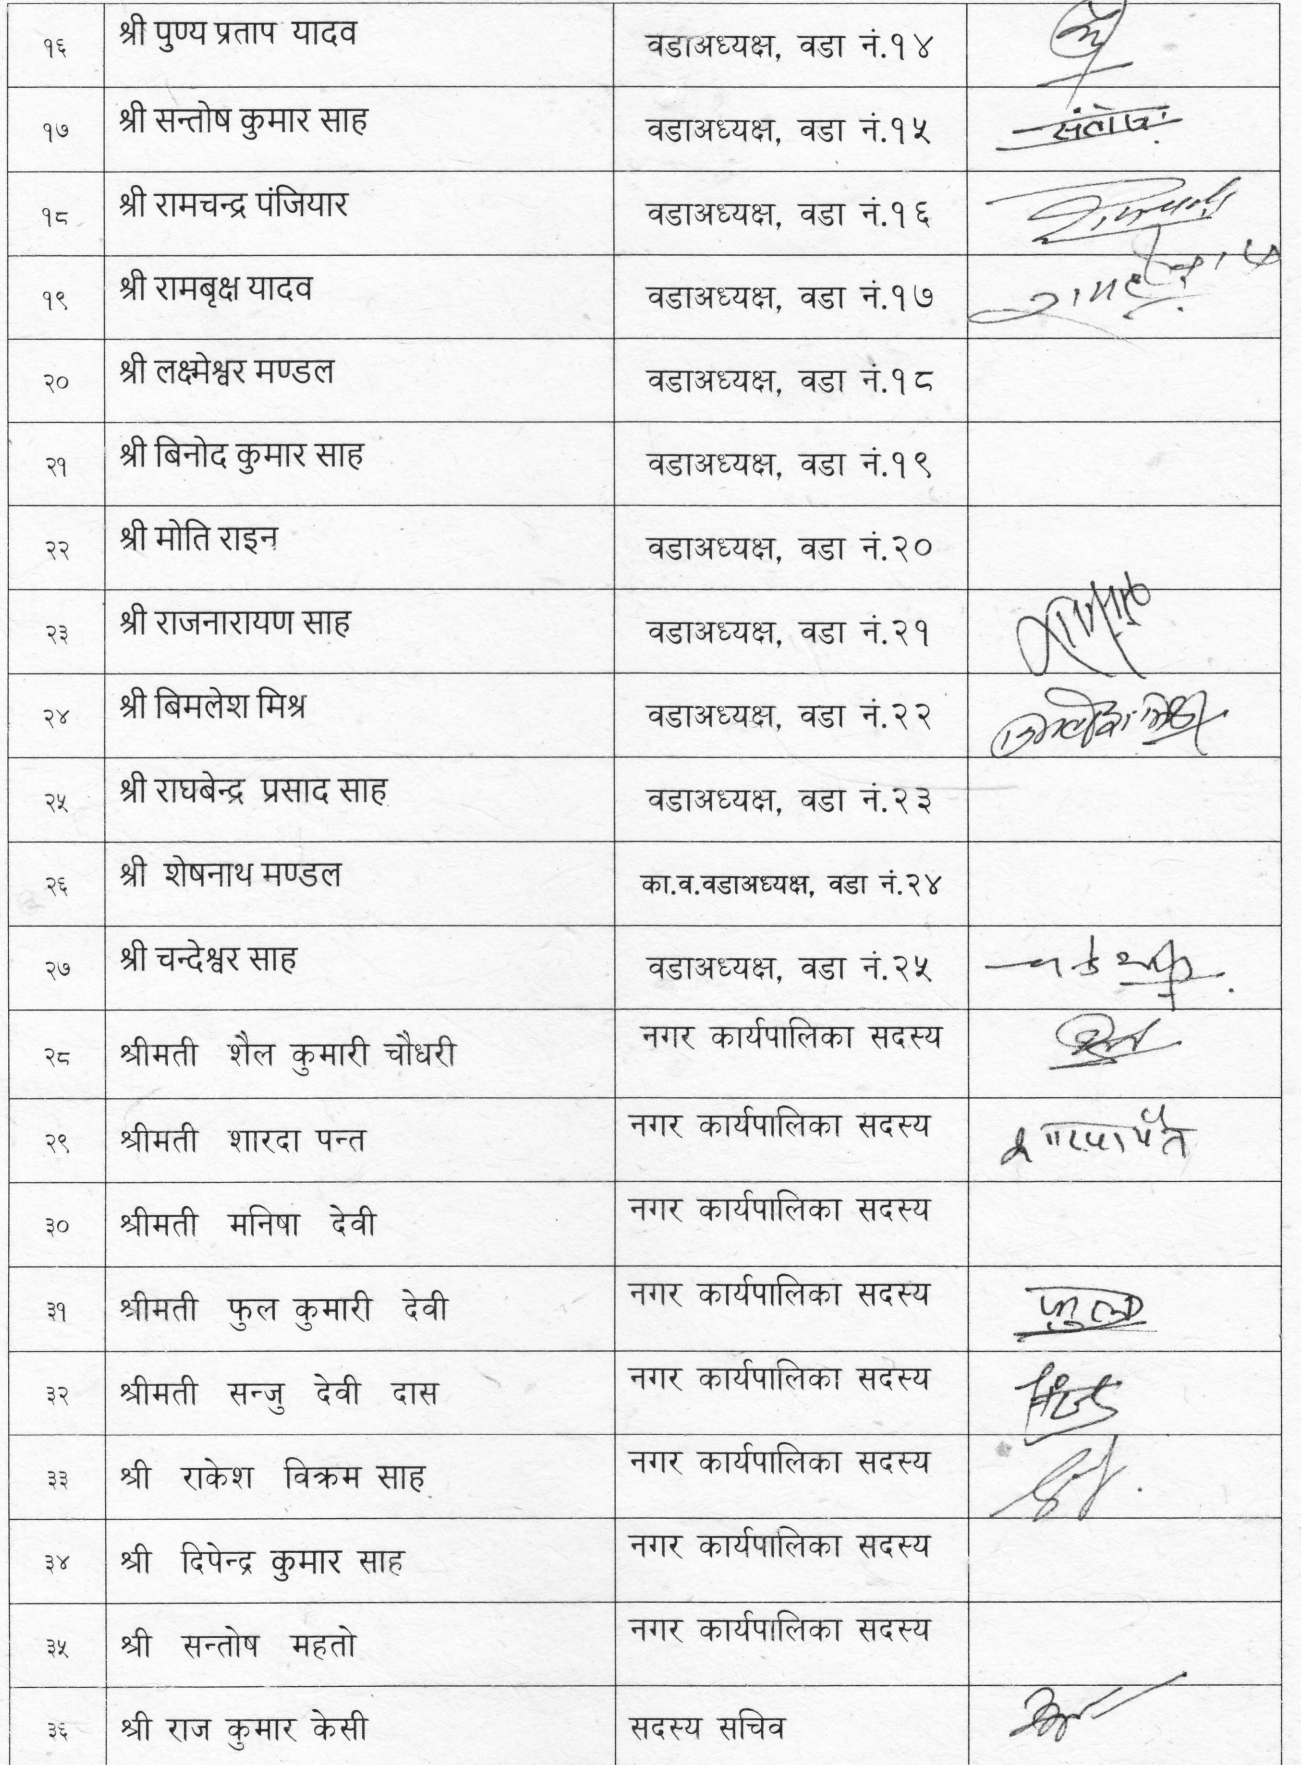 १६ श्री पुण्य प्रताप यादव वडाअध्यक्ष, वडा नं.१४
१७ श्री सन्तोष कुमार साह वडाअध्यक्ष, वडा नं.१५ संतोष
१८ श्री रामचन्द्र पंजियार वडाअध्यक्ष, वडा नं.१६
१९ श्री रामबृक्ष यादव वडाअध्यक्ष, वडा नं.१७
२० श्री लक्ष्मेश्वर मण्डल वडाअध्यक्ष, वडा नं.१८
२१ श्री बिनोद कुमार साह वडाअध्यक्ष, वडा नं.१९
२२ श्री मोति राइन वडाअध्यक्ष, वडा नं.२०
२३ श्री राजनारायण साह वडाअध्यक्ष, वडा नं.२१
२४ श्री बिमलेश मिश्र वडाअध्यक्ष, वडा नं.२२
२५ श्री राघबेन्द्र प्रसाद साह वडाअध्यक्ष, वडा नं.२३
२६ श्री शेषनाथ मण्डल का.व.वडाअध्यक्ष, वडा नं.२४
२७ श्री चन्देश्वर साह वडाअध्यक्ष, वडा नं.२५
२८ श्रीमती शैल कुमारी चौधरी नगर कार्यपालिका सदस्य
२९ श्रीमती शारदा पन्त नगर कार्यपालिका सदस्य शारदा पंत
३० श्रीमती मनिषा देवी नगर कार्यपालिका सदस्य
३१ श्रीमती फुल कुमारी देवी नगर कार्यपालिका सदस्य
३२ श्रीमती सन्जु देवी दास नगर कार्यपालिका सदस्य
३३ श्री राकेश विक्रम साह नगर कार्यपालिका सदस्य
३४ श्री दिपेन्द्र कुमार साह नगर कार्यपालिका सदस्य
३५ श्री सन्तोष महतो नगर कार्यपालिका सदस्य
३६ श्री राज कुमार केसी सदस्य सचिव